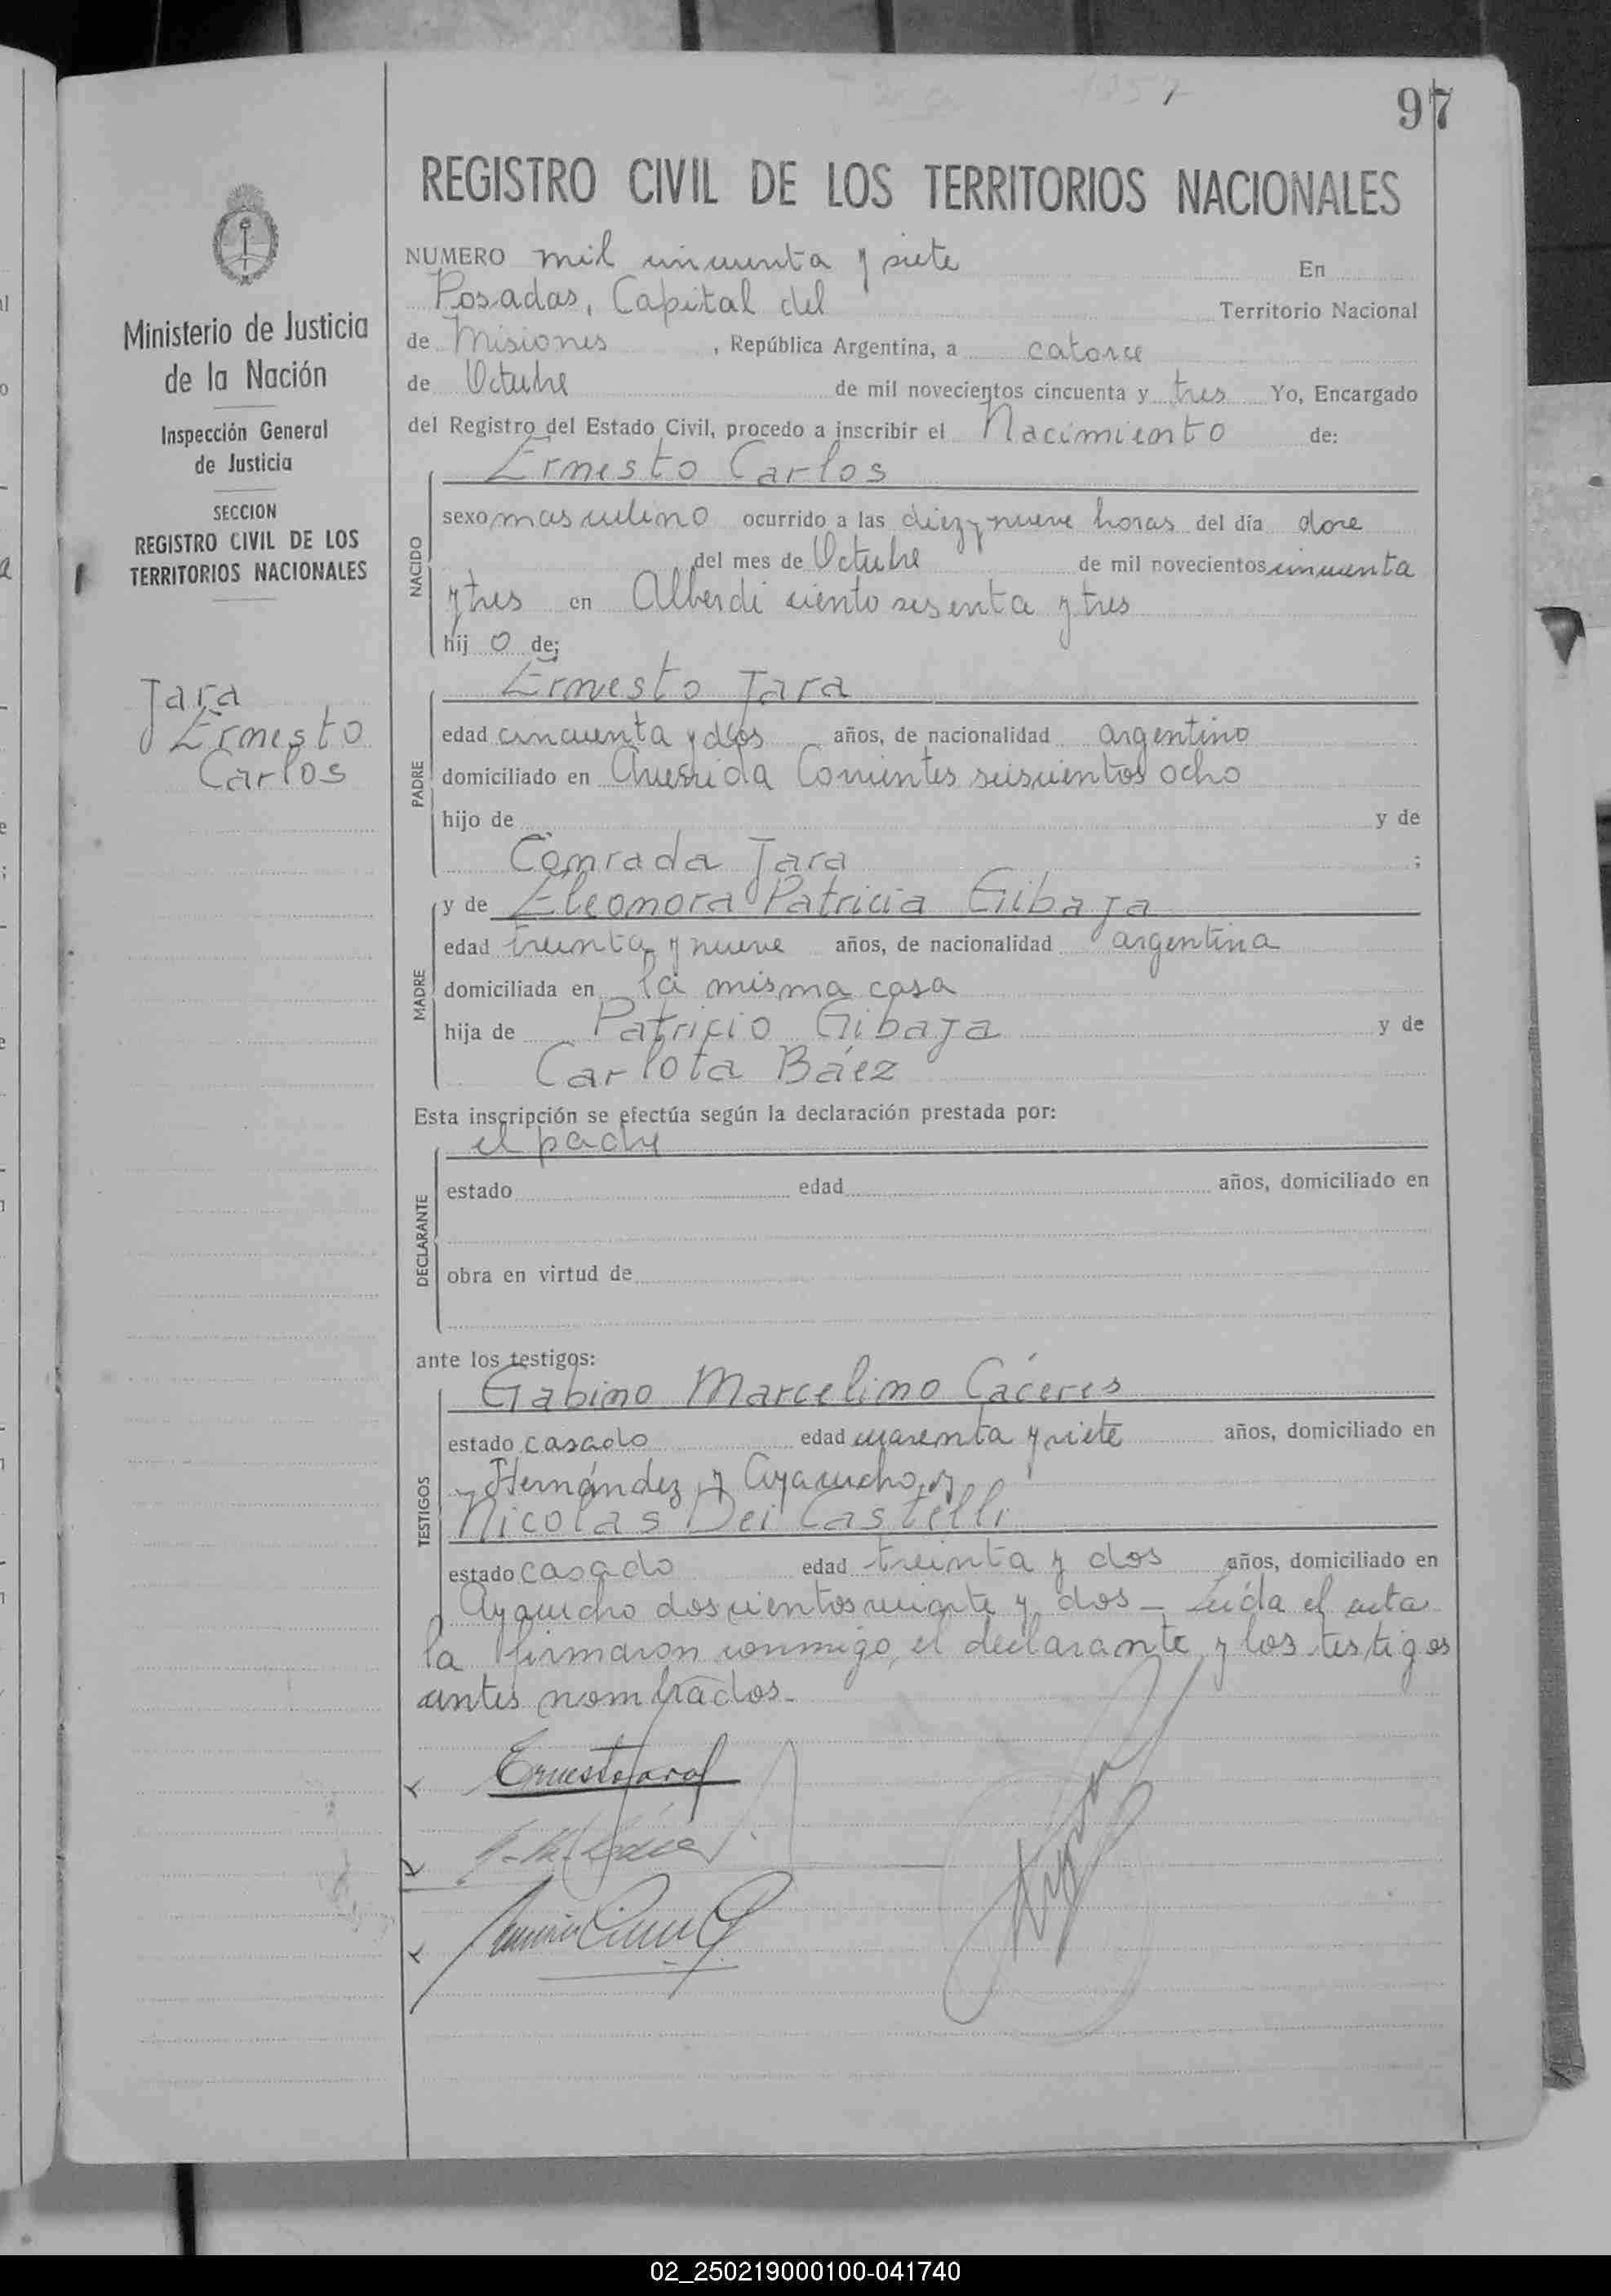 1057
97
REGISTRO CIVIL DE LOS TERRITORIOS NACIONALES
Ministerio de Justicia
de la Nación
Inspección General
de Justicia
SECCION
REGISTRO CIVIL DE LOS
TERRITORIOS NACIONALES
Jara
Ernesto
Carlos
NUMERO mil cincuenta y siete En
Posadas, Capital del Territorio Nacional
de Misiones , República Argentina, a catorce
de Octubre de mil novecientos cincuenta y tres Yo, Encargado
del Registro del Estado Civil, procedo a inscribir el Nacimiento de:
Ernesto Carlos
NACIDO
sexo masculino ocurrido a las diez y nueve horas del día doce
del mes de Octubre de mil novecientos cincuenta
y tres en Alberdi ciento sesenta y tres
hij o de;
Ernesto Jara
PADRE
edad cincuenta y dos años, de nacionalidad argentino
domiciliado en Avenida Corrientes seiscientos ocho
hijo de y de
Conrada Jara ;
y de Eleonora Patricia Gibaja
MADRE
edad treinta y nueve años, de nacionalidad argentina
domiciliada en la misma casa
hija de Patricio Gibaja y de
Carlota Báez
Esta inscripción se efectúa según la declaración prestada por:
el padre
DECLARANTE
estado edad años, domiciliado en
obra en virtud de
ante los testigos:
Gabino Marcelino Cáceres
TESTIGOS
estado casado edad cuarenta y siete años, domiciliado en
Hernández y Ayacucho, y
Nicolas Dei Castelli
estado casado edad treinta y dos años, domiciliado en
Ayacucho doscientos veinte y dos - Leída el acta
la firmaron conmigo, el declarante y los testigos
antes nombrados.-
Ernesto Jara
02_250219000100-041740